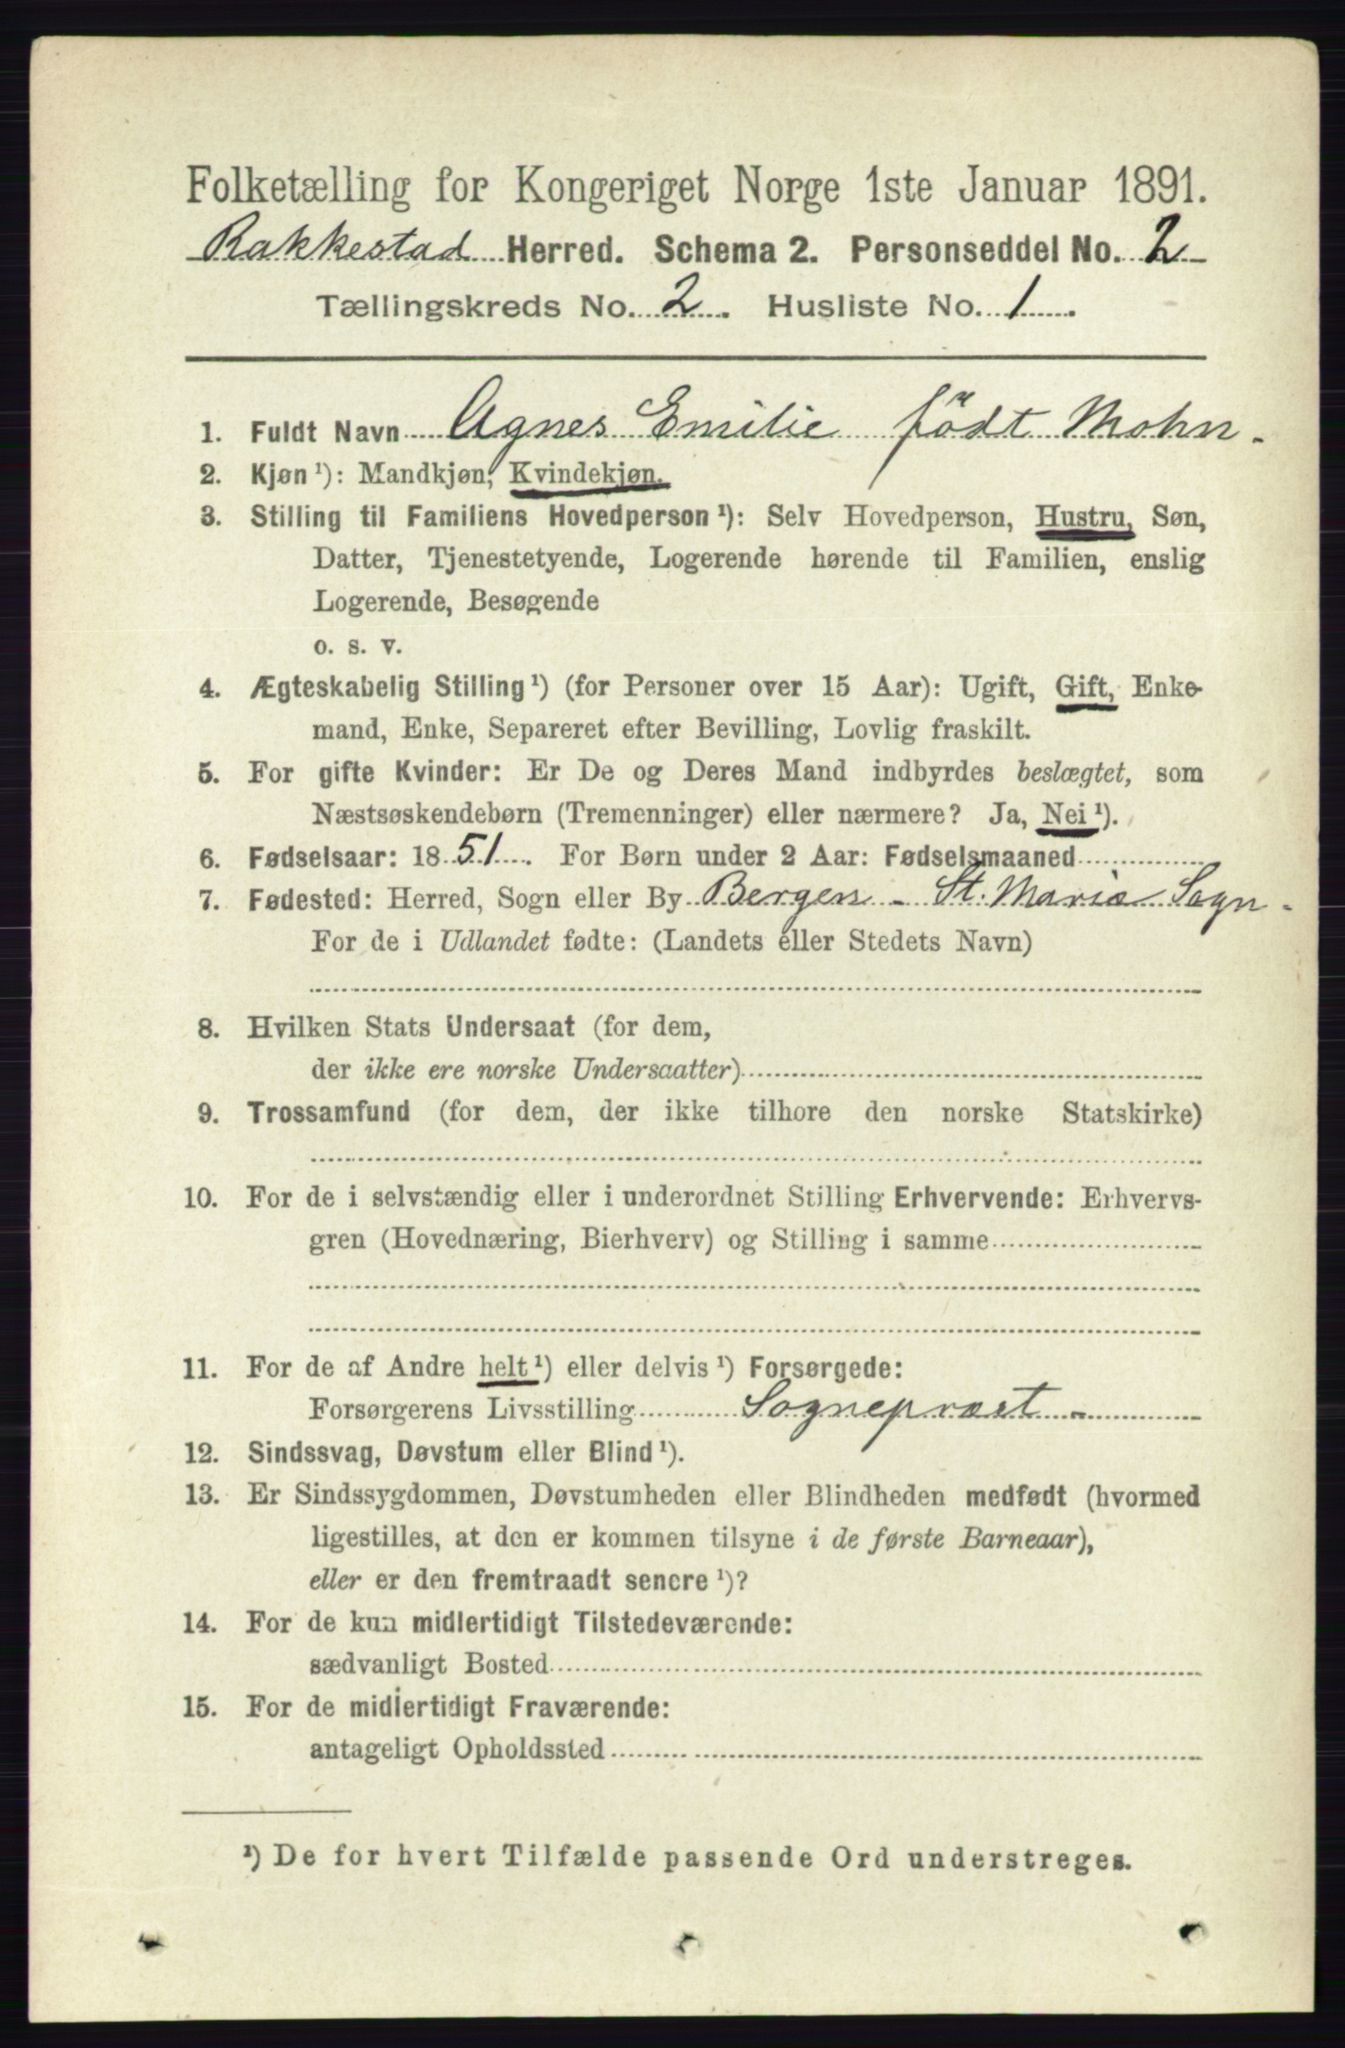 Folketælling for Kongeriget Norge 1ste Januar 1891.
Rakkestad Herred. Schema 2. Personseddel No. 2
Tællingskreds No. 2. Husliste No. 1.
1. Fuldt Navn Agnes Emilie født Mohn.
2. Kjøn ¹): Mandkjøn, Kvindekjøn.
3. Stilling til Familiens Hovedperson ¹): Selv Hovedperson, Hustru, Søn,
Datter, Tjenestetyende, Logerende hørende til Familien, enslig
Logerende, Besøgende
o. s. v.
4. Ægteskabelig Stilling ¹) (for Personer over 15 Aar): Ugift, Gift, Enke-
mand, Enke, Separeret efter Bevilling, Lovlig fraskilt.
5. For gifte Kvinder: Er De og Deres Mand indbyrdes beslægtet, som
Næstsøskendebørn (Tremenninger) eller nærmere? Ja, Nei ¹).
6. Fødselsaar: 1851. For Børn under 2 Aar: Fødselsmaaned
7. Fødested: Herred, Sogn eller By Bergen - St. Maria Sogn.
For de i Udlandet fødte: (Landets eller Stedets Navn)
8. Hvilken Stats Undersaat (for dem,
der ikke ere norske Undersaatter)
9. Trossamfund (for dem, der ikke tilhore den norske Statskirke)
10. For de i selvstændig eller i underordnet Stilling Erhvervende: Erhvervs-
gren (Hovednæring, Bierhverv) og Stilling i samme
11. For de af Andre helt ¹) eller delvis ¹) Forsørgede:
Forsørgerens Livsstilling Sognepræst -
12. Sindssvag, Døvstum eller Blind ¹).
13. Er Sindssygdommen, Døvstumheden eller Blindheden medfødt (hvormed
ligestilles, at den er kommen tilsyne i de første Barneaar),
eller er den fremtraadt senere ¹)?
14. For de kun midlertidigt Tilstedeværende:
sædvanligt Bosted
15. For de midlertidigt Fraværende:
antageligt Opholdssted
¹) De for hvert Tilfælde passende Ord understreges.